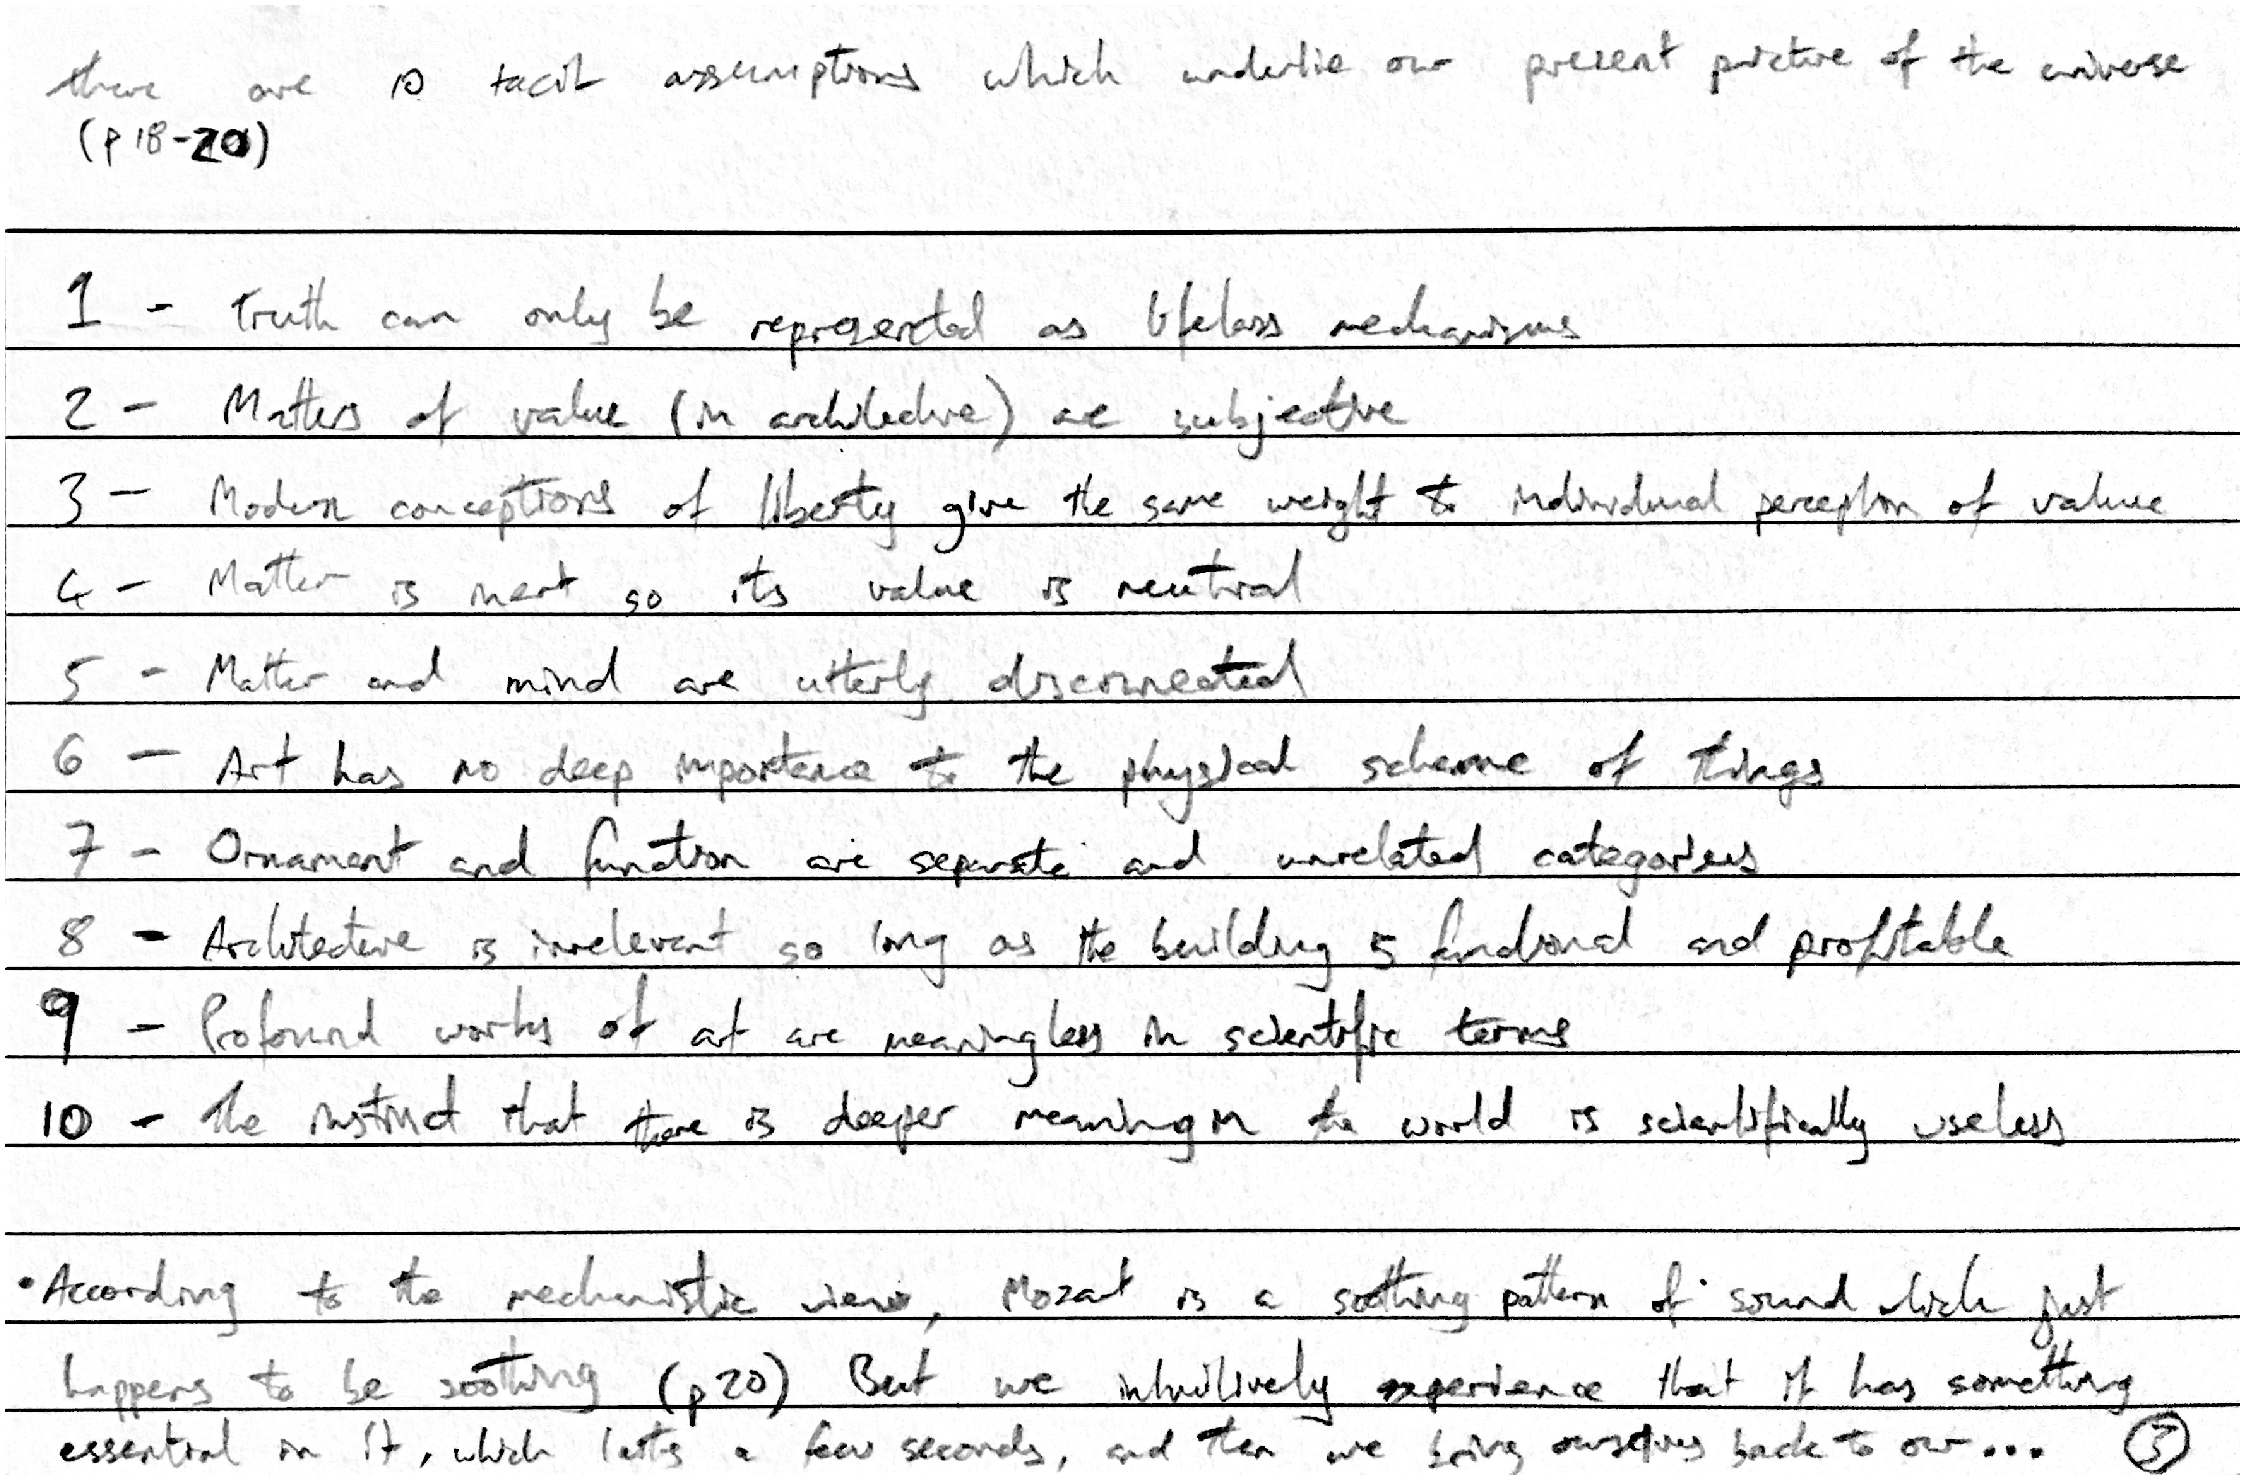 there are 10 tacit assumptions which underlie our present picture of the universe
(p 18-20)
1 - Truth can only be represented as lifeless mechanisms
2 - Matters of value (in architecture) are subjective
3 - Modern conceptions of liberty give the same weight to individual perception of value
4 - Matter is inert so its value is neutral
5 - Matter and mind are utterly disconnected
6 - Art has no deep importance to the physical scheme of things
7 - Ornament and function are separate and unrelated categories
8 - Architecture is irrelevant so long as the building is functional and profitable
9 - Profound works of art are meaningless in scientific terms
10 - The instinct that there is deeper meaning in the world is scientifically useless
• According to the mechanistic view, Mozart is a soothing pattern of sound which just
happens to be soothing (p 20) But we intuitively experience that it has something
essential in it, which lasts a few seconds, and then we bring ourselves back to our... 3